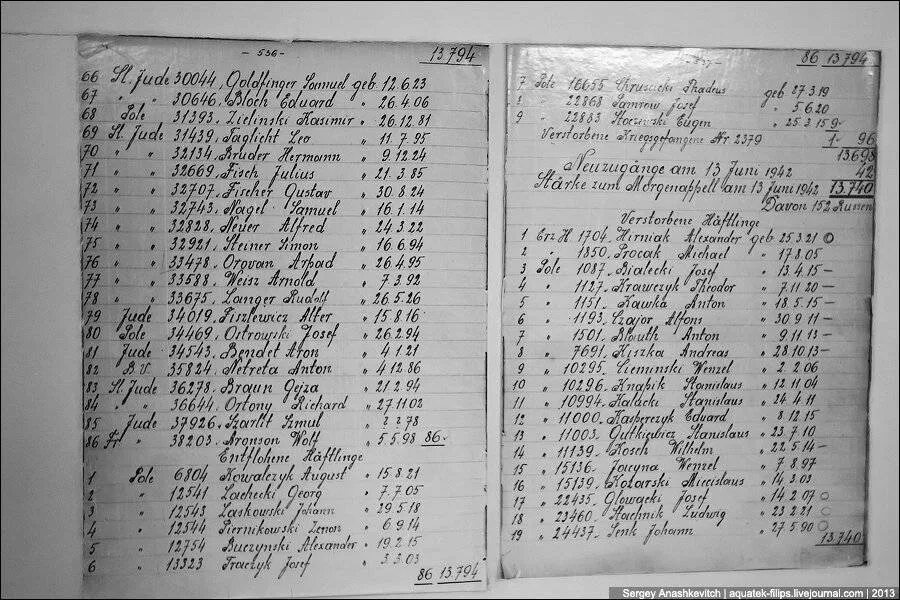 - 536 -
13.794
66 Sl. Jude 30044, Goldfinger Samuel geb. 12.6.23
67 " " 30646, Bloch Eduard " 26.4.06
68 Pole 31393, Zielinski Kasimir " 26.12.81
69 Sl. Jude 31439, Taglicht Leo " 11.7.95
70 " " 32134, Kruder Hermann " 9.12.24
71 " " 32669, Fisch Julius " 21.3.85
72 " " 32707, Fischer Gustav " 30.8.24
73 " " 32743, Nagel Samuel " 16.1.14
74 " " 32828, Neuer Alfred " 24.3.22
75 " " 32921, Steiner Simon " 16.6.94
76 " " 33478, Orovan Arpad " 26.4.95
77 " " 33588, Weisz Arnold " 7.3.92
78 " " 33675, Langer Rudolf " 26.5.26
79 Jude 34019, Fiszlewicz Alter " 15.8.16
80 Pole 34469, Ostrowski Josef " 26.2.94
81 Jude 34543, Bendet Aron " 4.1.21
82 B.V. 35824, Netreta Anton " 4.12.86
83 Sl. Jude 36278, Braun Gejza " 21.2.94
84 " 36644, Ortony Richard " 27.11.02
85 Jude 37926, Szarlit Szmul " 2.2.78
86 Fr. " 38203, Aronson Wolf " 5.5.98 86.-
Entflohene Häftlinge
1 Pole 6804 Kowalczyk August " 15.8.21
2 " 12541 Lachecki Georg " 7.7.05
3 " 12543 Laskowski Johann " 29.5.18
4 " 12544 Piernikowski Zenon " 6.9.14
5 " 12754 Buczynski Alexander " 19.2.15
6 " 13323 Traczyk Josef " 3.3.03
86 13.794
86 13.794
7 Pole 16655 Chruscicki Thadeus geb 27.3.19
8 " 22868 Pamrow Josef " 5.6.20
9 " 22883 Stoczewski Eugen " 25.3.15 9.-
Verstorbene Kriegsgefangene Nr. 2379 1.- 96
13698
Neuzugänge am 13 Juni 1942 42
Stärke zum Morgenappell am 13 Juni 1942 13.740
Davon 152 Russen
Verstorbene Häftlinge
1 Erz.H. 1704, Hirniak Alexander geb 25.3.21
2 " 1850, Procak Michael " 17.8.05
3 Pole 1087, Bialecki Josef " 13.4.15 -
4 " 1127, Krawczyk Theodor " 7.11.20 -
5 " 1151, Kawka Anton " 18.5.15 -
6 " 1193, Czajor Alfons " 30.9.11 -
7 " 1501, Blauth Anton " 9.11.13 -
8 " 7691, Kiszka Andreas " 28.10.13 -
9 " 10295, Cieminski Wenzel " 2.2.06
10 " 10296, Knapik Stanislaus " 12.11.04
11 " 10994, Kalacki Stanislaus " 24.4.11
12 " 11000, Kasperczyk Eduard " 8.12.15
13 " 11003, Gutkiewicz Stanislaus " 23.7.10
14 " 11139, Kosch Wilhelm " 22.5.14 -
15 " 15136, Jacyna Wenzel " 7.8.97
16 " 15139, Kotarski Miecislaus " 14.3.03
17 " 22435, Glowacki Josef " 14.2.07
18 " 23460, Stachnik Ludwig " 23.2.21
19 " 24437, Senk Johann " 27.5.90
13.740
Sergey Anashkevitch | aquatek-filips.livejournal.com | 2013